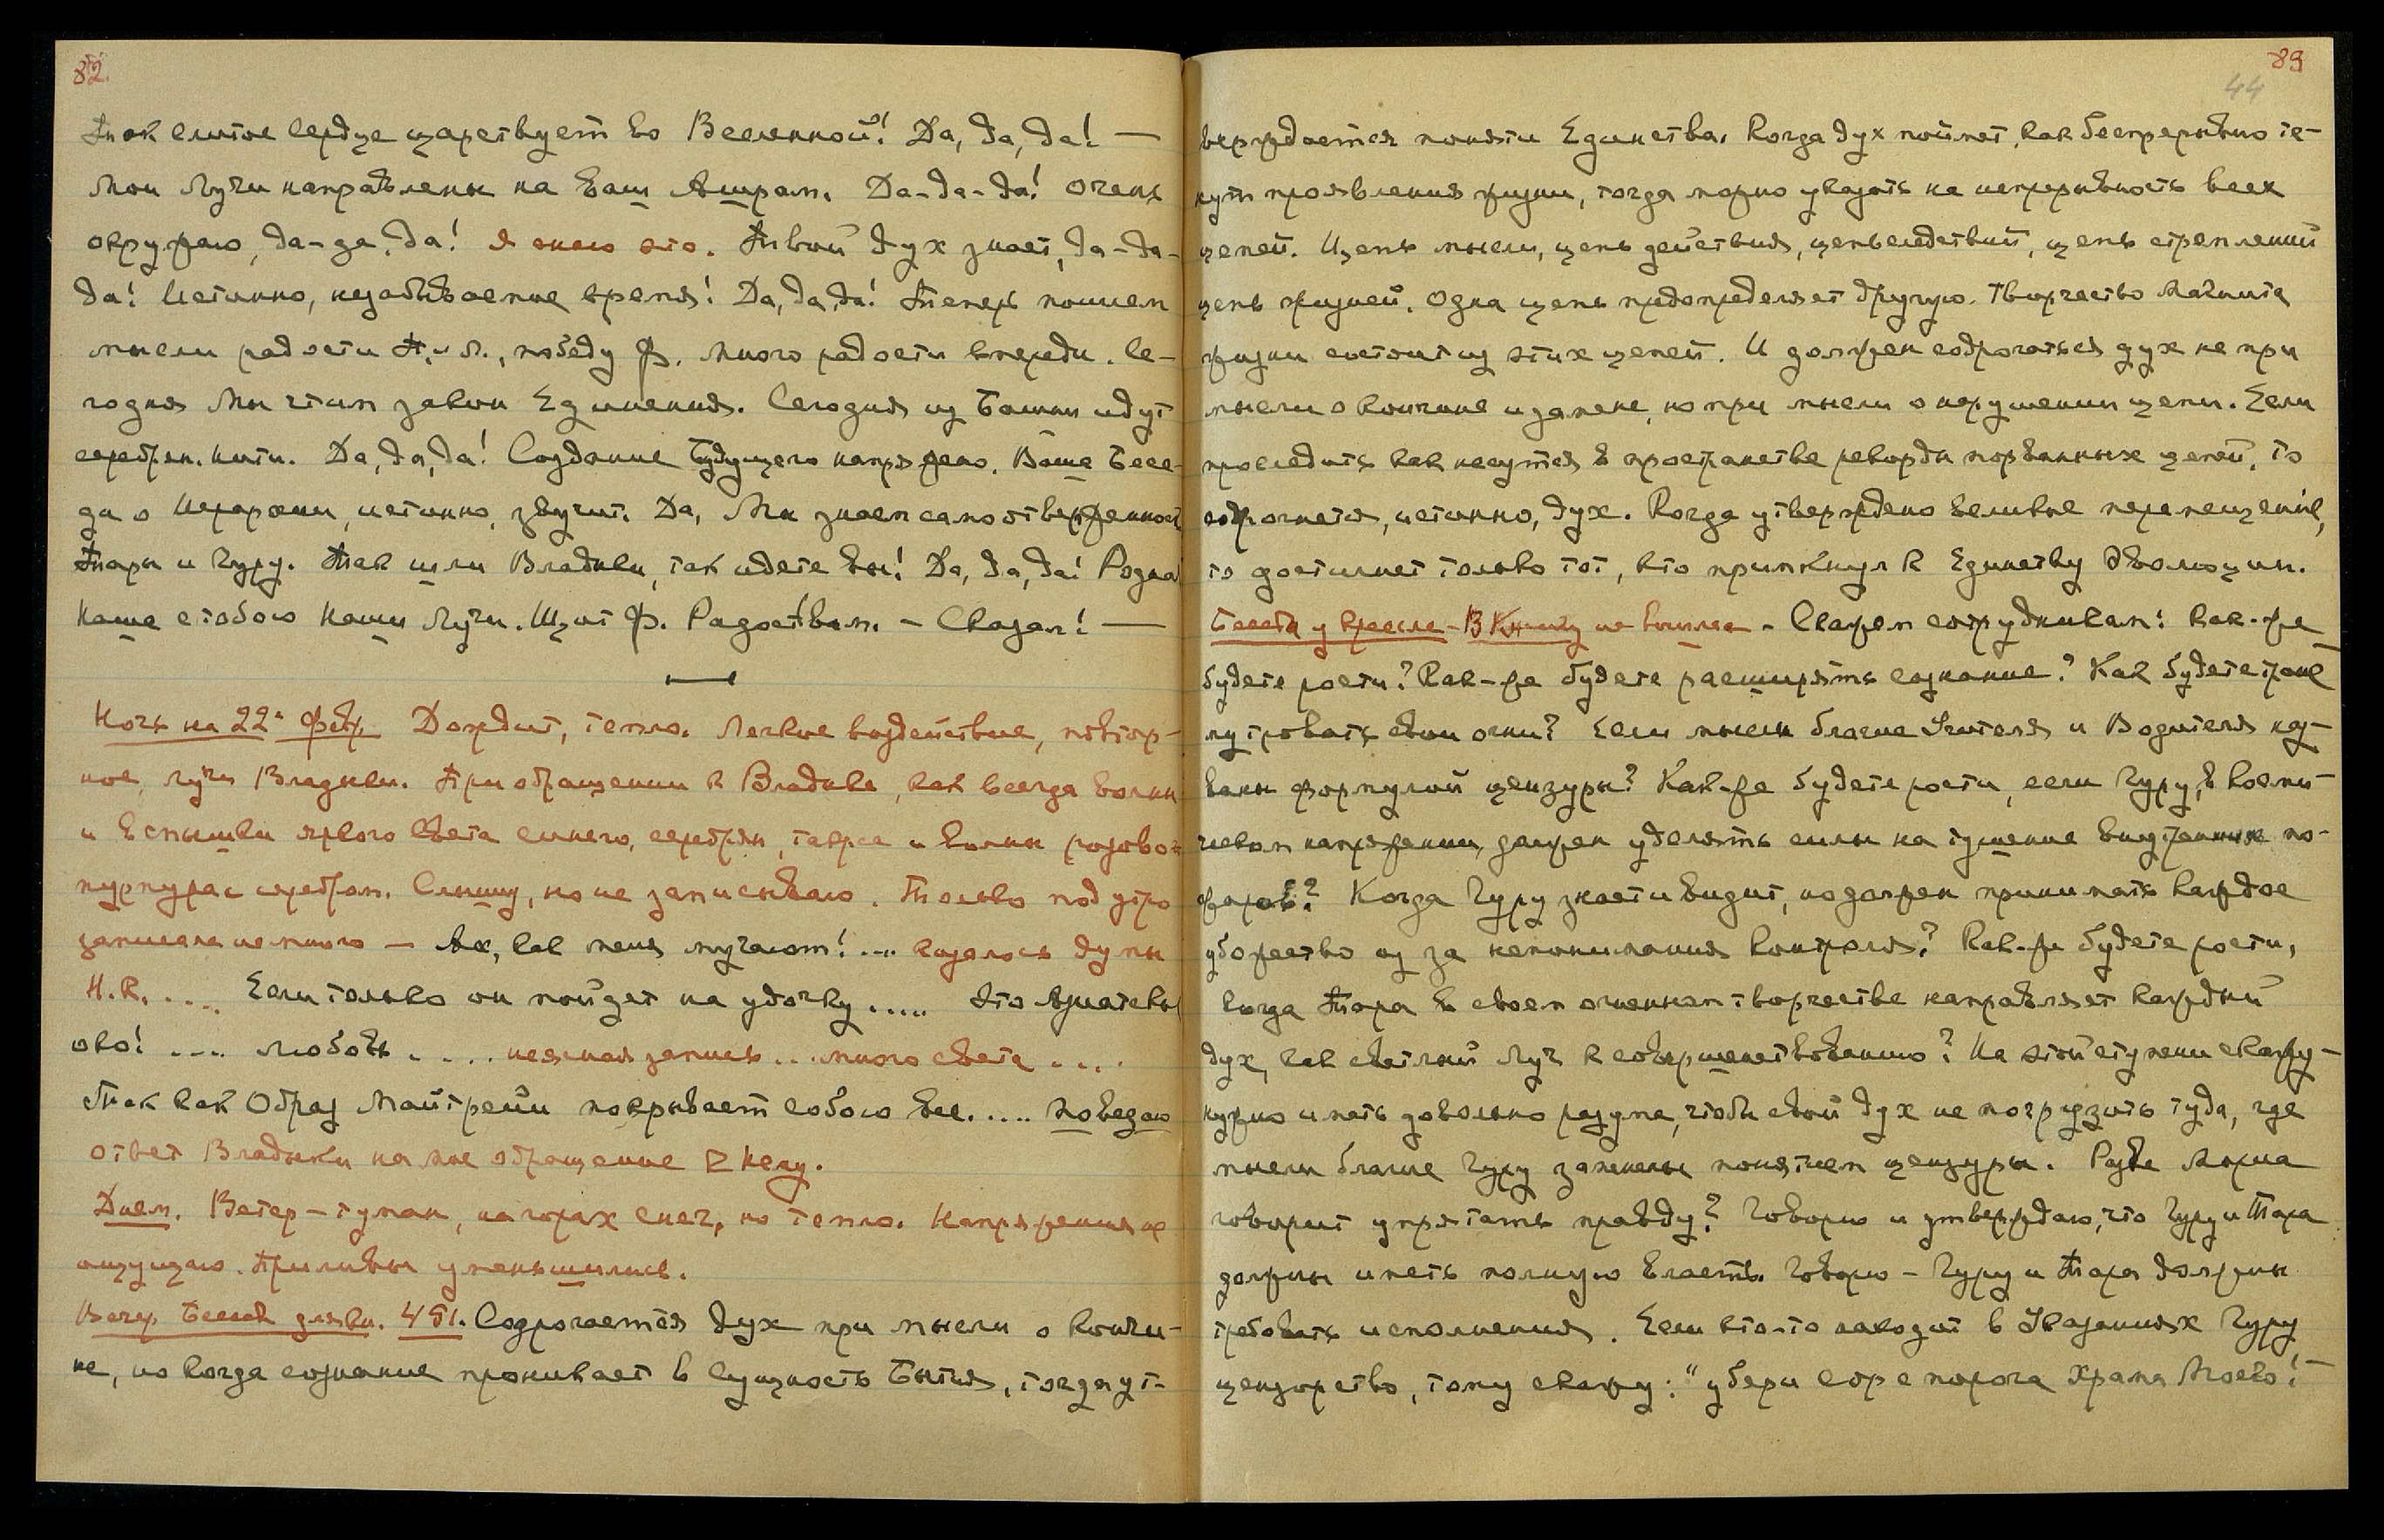 82.
Так слитое сердце царствует во Вселенной! Да, да, да! —
Мои Лучи направлены на Ваш Ашрам. Да-да-да! Очень
окружаю, да-да, да! Я знаю это. Твой дух знает, да-да-
да! Истинно, незабываемое время! Да, да, да! Теперь пошлем
мысли радости Т. и Л., победу Ф. Много радости впереди. Се-
годня Мы чтим закон Единения. Сегодня из Башни идут
серебрян. нити. Да, да, да! Создание Будущего напряжено. Ваше Бесе-
да о Иерархии, истинно, звучит. Да, Мы знаем самоотверженность
Тары и Гуру. Так шли Владыки, так идете вы! Да, да, да! Родная
Наша с тобою Наши Лучи. Щит Ф. Радость Вам. — Сказал! —
Ночь на 22ое Февр. Дождит, тепло. Легкое воздействие, повтор-
ное, луча Владыки. При обращении к Владыке, как всегда волны
и вспышки яркого света синего, серебрян, также и волны розово-
пурпура с серебром. Слышу, но не записываю. Только под утро
записала немного — Ах, как меня мучают! .... казалось думы
Н.К. .... Если только он пойдет на удочку ..... Это Азиатское
око! .... любовь .... неясная запись ... много света ....
Так как Образ Майтрейи покрывает собою все..... поведаю
ответ Владыки на мое обращение к Нему.
Днем. Ветер – туман, на горах снег, но тепло. Напряжения не
ощущаю. Приливы уменьшились.
Вечер. Беседа для кн. 451. Содрогается дух при мысли о кончи-
не, но когда сознание проникает в сущность Бытия, тогда ут-
83
44
верждается понятие Единства. Когда дух поймет, как беспрерывно те-
кут проявления жизни, тогда можно указать на непрерывность всех
цепей. Цепь мысли, цепь действия, цепь следствий, цепь стремлений
цепь жизней. Одна цепь предопределяет другую. Творчество Магнита
жизни состоит из этих цепей. И должен содрогаться дух не при
мысли о кончине и замене, но при мысли о нарушении цепи. Если
проследить как несутся в пространстве рекорды порванных цепей, то
содрогнется, истинно, дух. Когда утверждено великое перемещение,
то достигнет только тот, кто примкнул к Единству Эволюции.
Беседа у кресла - В Книгу не вошла - Скажем сотрудникам: Как-же
будете расти? Как-же будете расширять сознание? Как будете транс
мутировать свои огни? Если мысли благие Учителя и Водителя наз-
ваны формулой цензуры? Как-же будете расти, если Гуру, в косми-
ческом напряжении, должен уделять силы на тушение внутренних по-
жаров? Когда Гуру знает и видит, но должен принимать каждое
убожество из за непонимания контроля? Как-же будете расти,
когда Тара в своем огненном творчестве направляет каждый
дух, как светлый луч к совершенствованию? На этой ступени скажу -
нужно иметь довольно разума, чтобы свой дух не погрузить туда, где
мысли благие Гуру заменены понятием цензуры. Разве Мориа
говорит упрятать правду? Говорю и утверждаю, что Гуру и Тара
должны иметь полную власть. Говорю – Гуру и Тара должны
требовать исполнения. Если кто-то находит в Указаниях Гуру
цензорство, тому скажу: "убери сор с порога Храма Моего!"